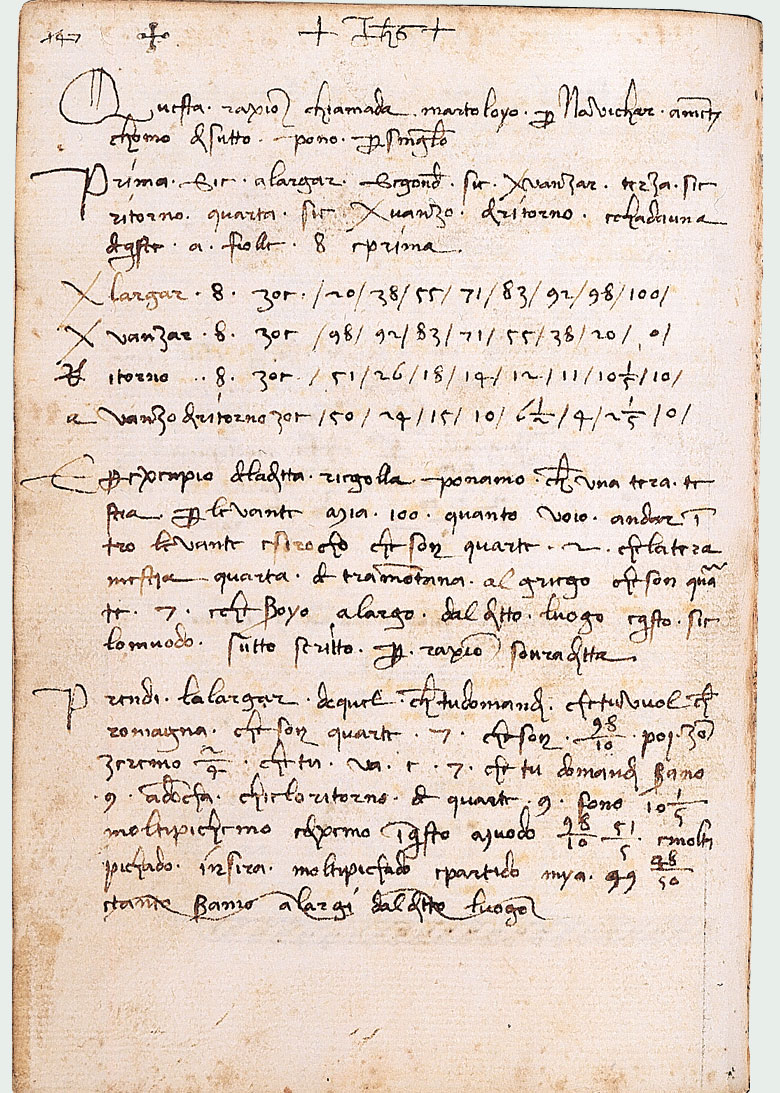 147 + + Ihs +
Questa raxion chiamada martoloyo. per Navichar. a mente
chomo de sutto. pono. per singolo
Prima. Sic. alargar. Segond. sic. Avanzar. terza. sic
ritorno. quarta. sic Avanzo. de ritorno. e chadauna
de queste. a. fiolc. 8 e prima.
A largar. 8. zoe. / 20 / 38 / 55 / 71 / 83 / 92 / 98 / 100 /
A vanzar. 8. zoe / 98 / 92 / 83 / 71 / 55 / 38 / 20 / 0 /
R itorno .. 8. zoe. / 51 / 26 / 18 / 14 / 12 / 11 / 10 1/5 / 10 /
a vanzo de ritorno zoe / 50 / 24 / 15 / 10 / 6 1/2 / 4 / 2 1/5 / 0 /
E per exempio dela ditta. riegolla. ponamo. che una tera. me
stia. per levante mia. 100. quanto voio. andar in
tro levante e sirocho che son quarte. 2. che la tera
me stia quarta. de tramontana. al griego che son quar
te. 7. e che Soyo alargo. dal ditto. luogo e questo. sie
lo muodo. sutto scritto. per. raxion souraditta.
Prendi. la largar. de quel. che tu domandi. che tu vuol che
romagna. che son quarte. 7. che son. 98/10. poi. zo
zeremo 2/9. che tu. va. e. 7. che tu domandi Sano
.9. adocha. che elo ritorno. de quarte. 9. sono 10 1/5
moltipichemo e dixemo in questo muodo 98/10 51/5. e molti
pichado. insira. moltipichado e partido mya. 99 48/50
e tante Samo alargi dal ditto luogo